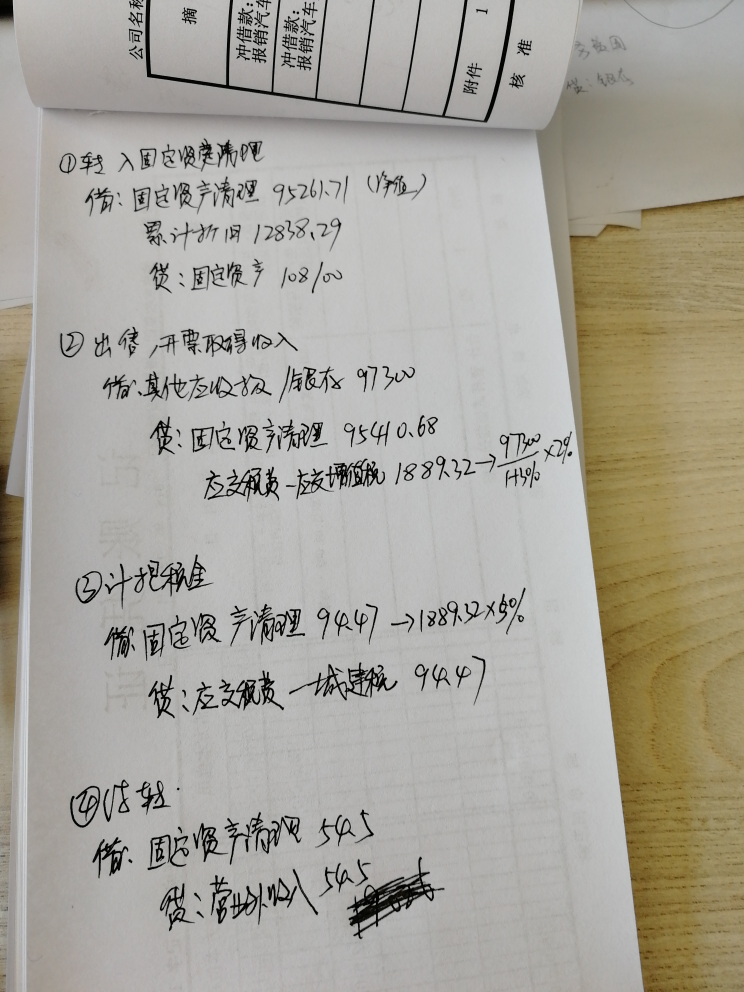 公司名称
摘
冲借款:
报销汽车
冲借款:
报销汽车
附件 1
核 准
贷:银存
①转入固定资产清理
借:固定资产清理 95261.71 (净值)
累计折旧 12838.29
贷:固定资产 108100
②出售,开票取得收入
借:其他应收款/银存 97300
贷:固定资产清理 95410.68
应交税费-应交增值税 1889.32→97300/1+3%×2%
③计提税金
借:固定资产清理 94.47→1889.32×5%
贷:应交税费—城建税 94.47
④结转.
借:固定资产清理 54.5
贷:营业外收入 54.5